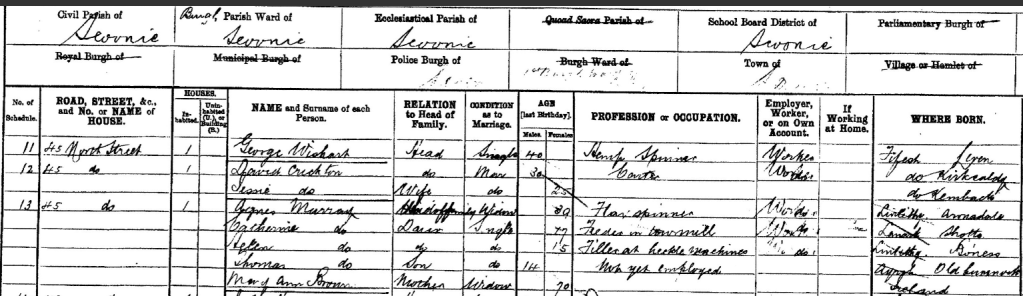 Civil Parish of Scoonie
Burgh Parish Ward of Scoonie
Ecclesiastical Parish of Scoonie
Quoad Sacra Parish of
School Board District of Scoonie
Parliamentary Burgh of
Royal Burgh of
Municipal Burgh of
Police Burgh of
Burgh Ward of
Town of
Village or Hamlet of
No. of Schedule. ROAD, STREET, &c., and No. or NAME of HOUSE. HOUSES. Inhabited. Uninhabited (U.), or Building (B.) NAME and Surname of each Person. RELATION to Head of Family. CONDITION as to Marriage. AGE [last Birthday]. Males. Females. PROFESSION or OCCUPATION. Employer, Worker, or on Own Account. If Working at Home. WHERE BORN.
11 45 North Street 1 George Wishart Head Single 40 Hemp Spinner Worker Fifesh Leven
12 45 do 1 David Crichton do Mar 30 Carter Worker do Kirkcaldy
Jessie do Wife do 25 do Kemback
13 45 do 1 Agnes Murray Head of family Widow 39 Flax spinner Worker Linlithg Armadale
Catherine do Daur Single 17 Feeder in tow mill Worker Lanark Shotts
Helen do do do 15 Filler at heckle machines do Linlithg Boness
Thomas do Son do 14 Not yet employed Ayrsh Old Cumnock
Mary Ann Brown Mother Widow 70 Ireland